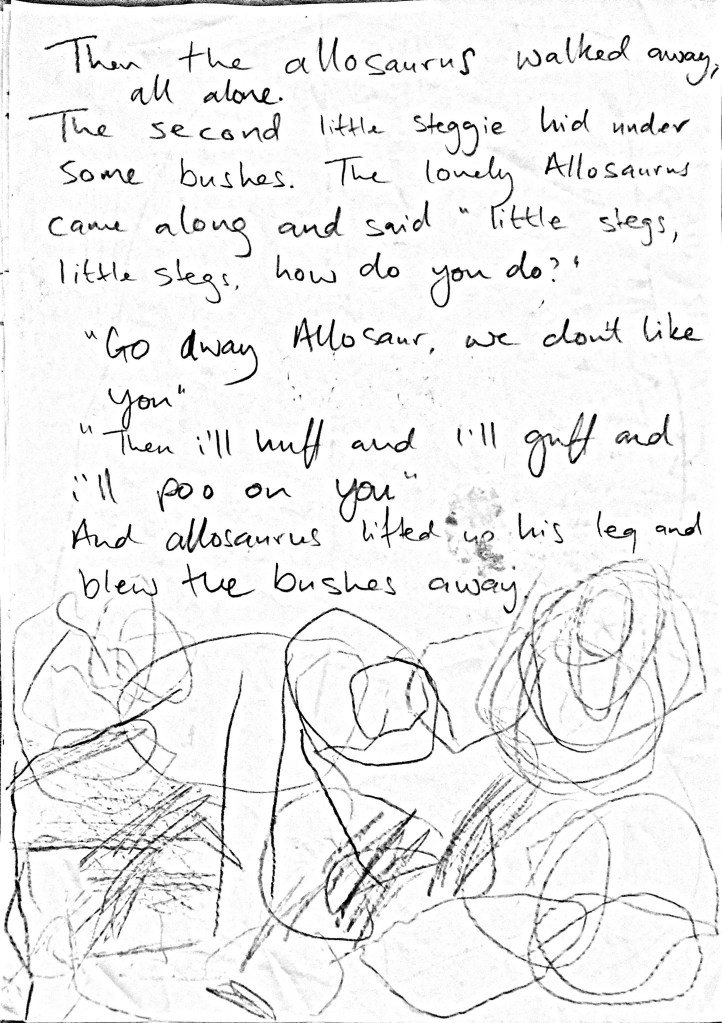 Then the allosaurus walked away,
all alone.
The second little steggie hid under
some bushes. The lonely Allosaurus
came along and said "little stegs,
little stegs, how do you do?'
"Go away Allosaur, we don't like
you"
"Then i'll huff and i'll guff and
i'll poo on you"
And allosaurus lifted up his leg and
blew the bushes away